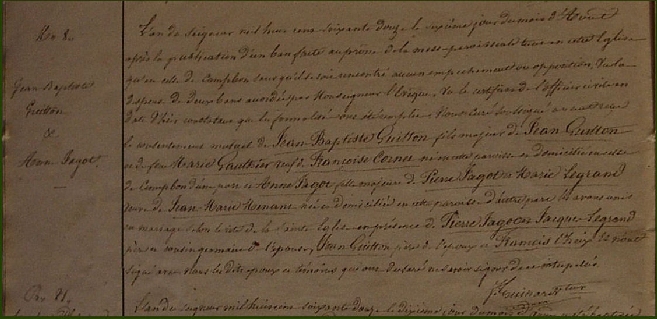 No 8.
Jean Baptiste
Guitton
&
Anne Jagot
L'an du Seigneur mil huit cent soixante douze le sixième jour du mois d'Août
après la publication d'un ban faite au prône de la messe paroissiale tant en cette Eglise
qu'en celle de Campbon sans qu'il se soit rencontré aucun empêchement ou opposition, Vu la
dispense de deux bans accordée par Monseigneur l'Evêque, Vu le certificat de l'officier civil en
date d'hier constatant que les formalités ont été remplies Nous curé soussigné avons reçu
le consentement mutuel de Jean Baptiste Guitton fils majeur de Jean Guitton
et de feu Marie Gauthier veuf de Françoise né en notre paroisse et domicilié en celle
de Campbon d'une part et Anne Jagot fille majeure de Pierre Jagot et Marie Legrand
veuve de Jean Marie née et domiciliée en cette paroisse d'autre part les avons unis
en mariage selon le rit de la Sainte Eglise en présence de Pierre Jagot et Jacques Legrand
père et cousin germain de l'épouse, Jean Guitton père de l'époux et François
signé avec nous les dits époux et témoins qui ont déclaré ne savoir signer de ce interpellés.
L'an du Seigneur mil huit cent soixante douze le dixième jour du mois d'Août